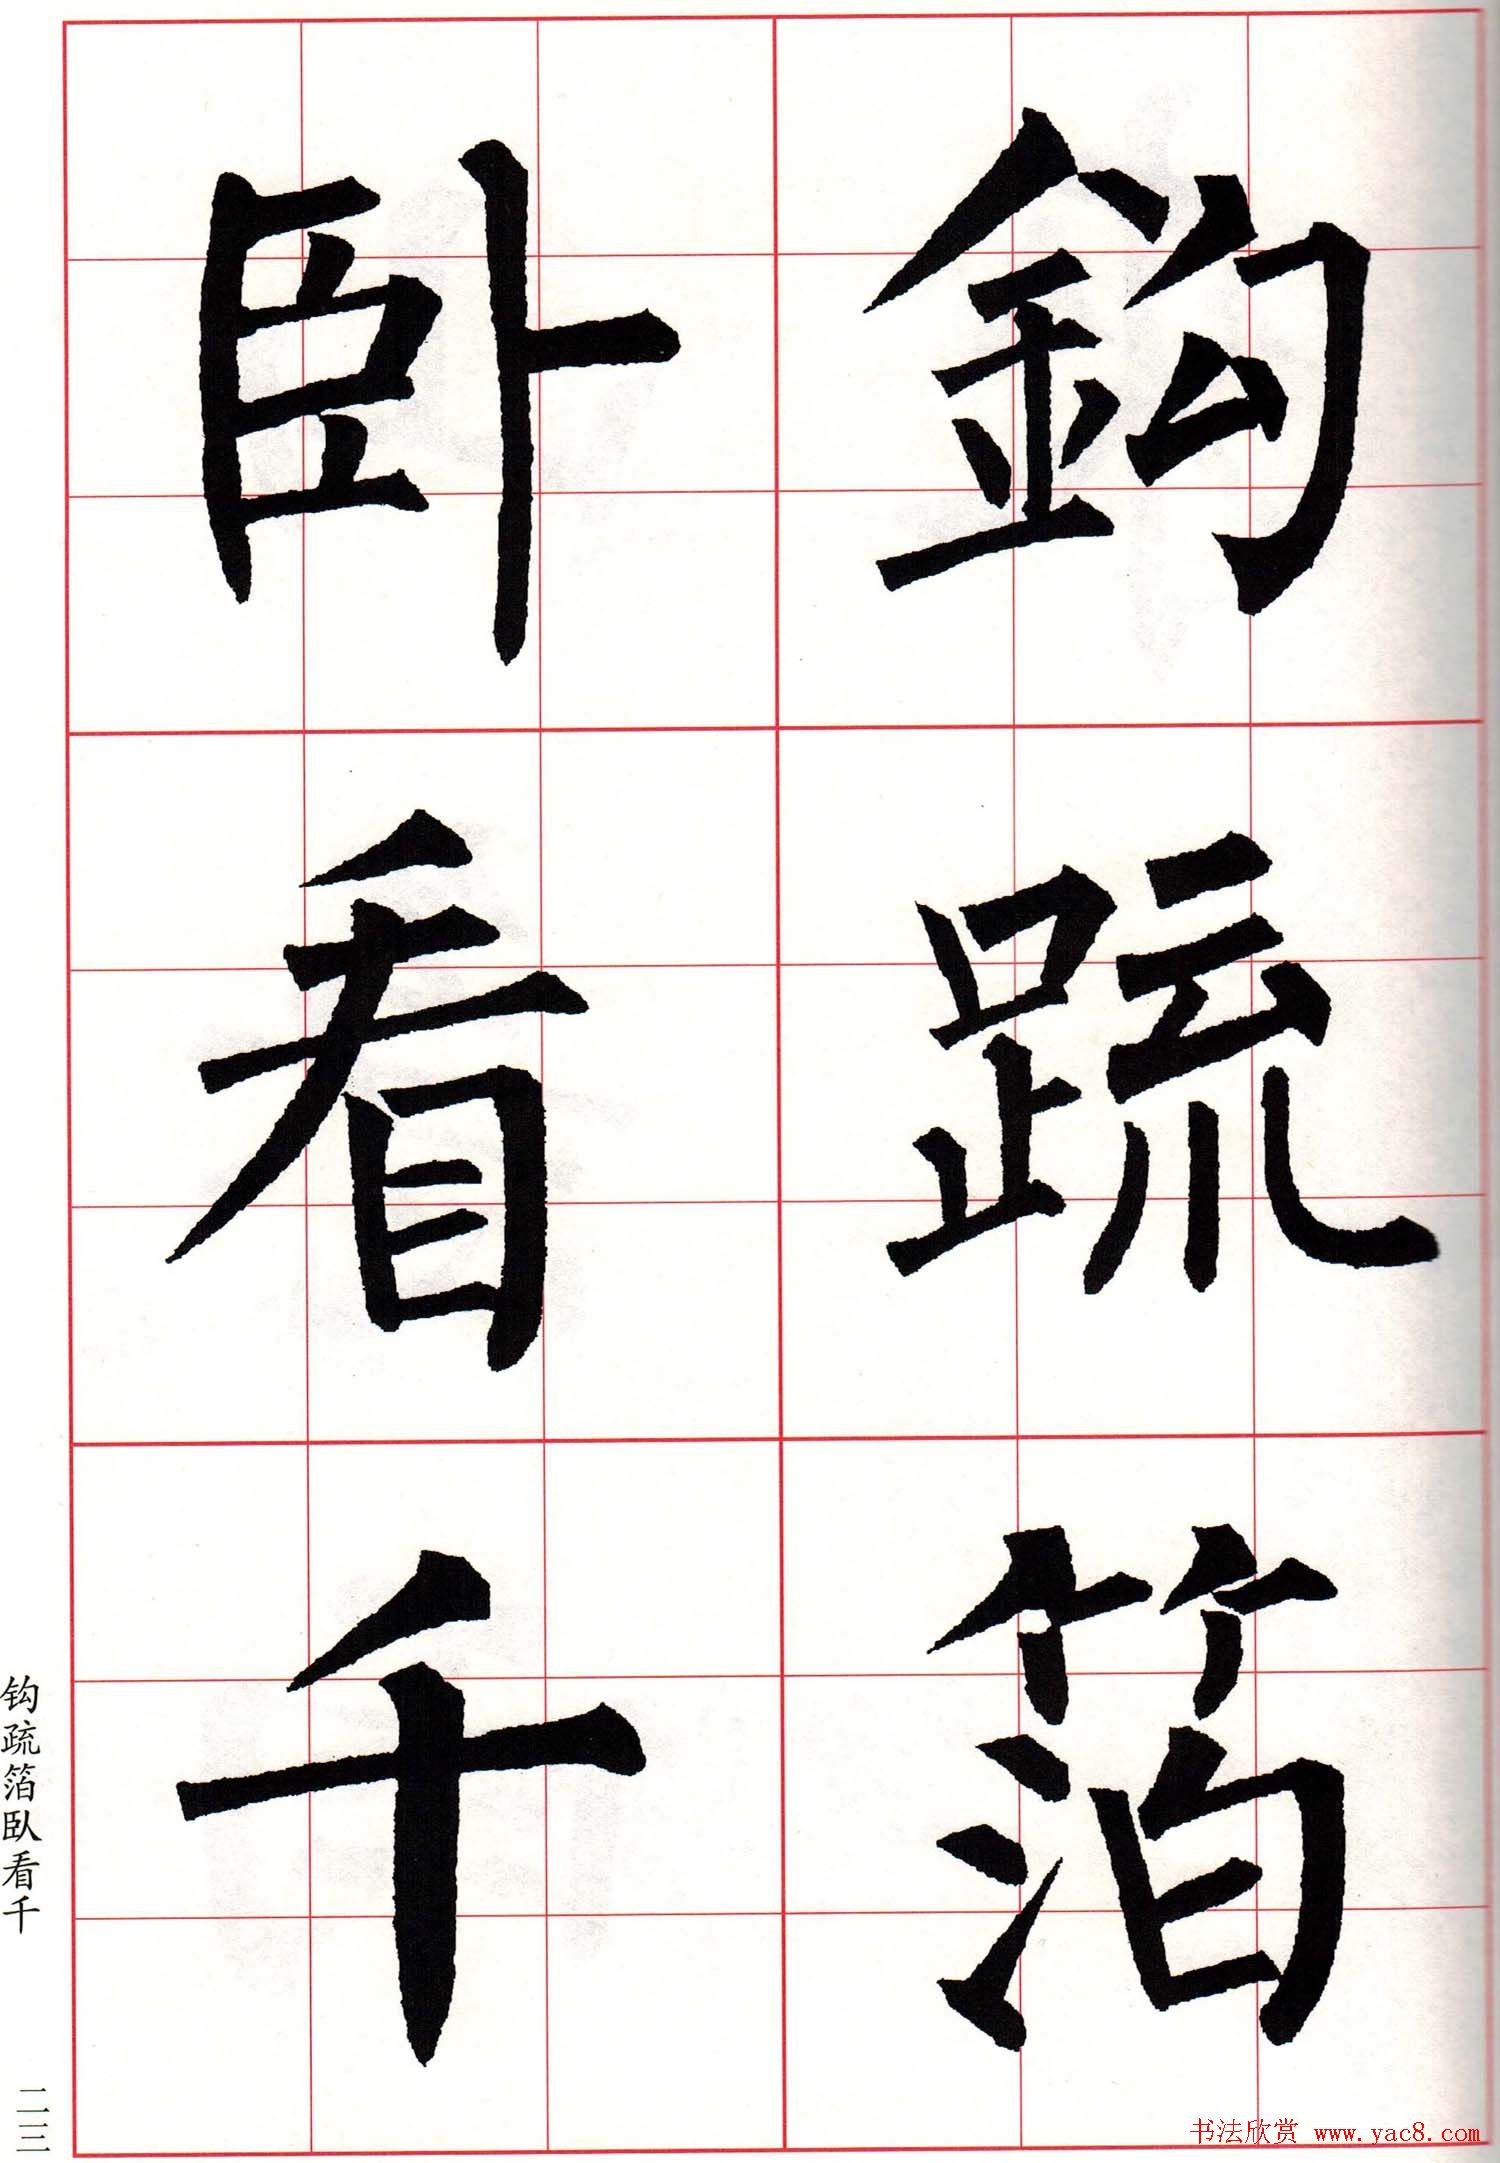 鈎疏箔
臥看千
钩疏箔臥看千
二三
书法欣赏 www.yac8.com